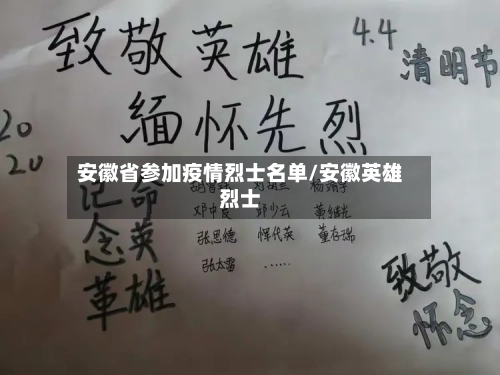 致敬英雄
4.4
清明节
缅怀先烈
2020
安徽省参加疫情烈士名单/安徽英雄
烈士
记念革命英雄
邓中夏 邱少云 黄继光
张思德 恽代英 董存瑞
张太雷 ……
致敬
怀念